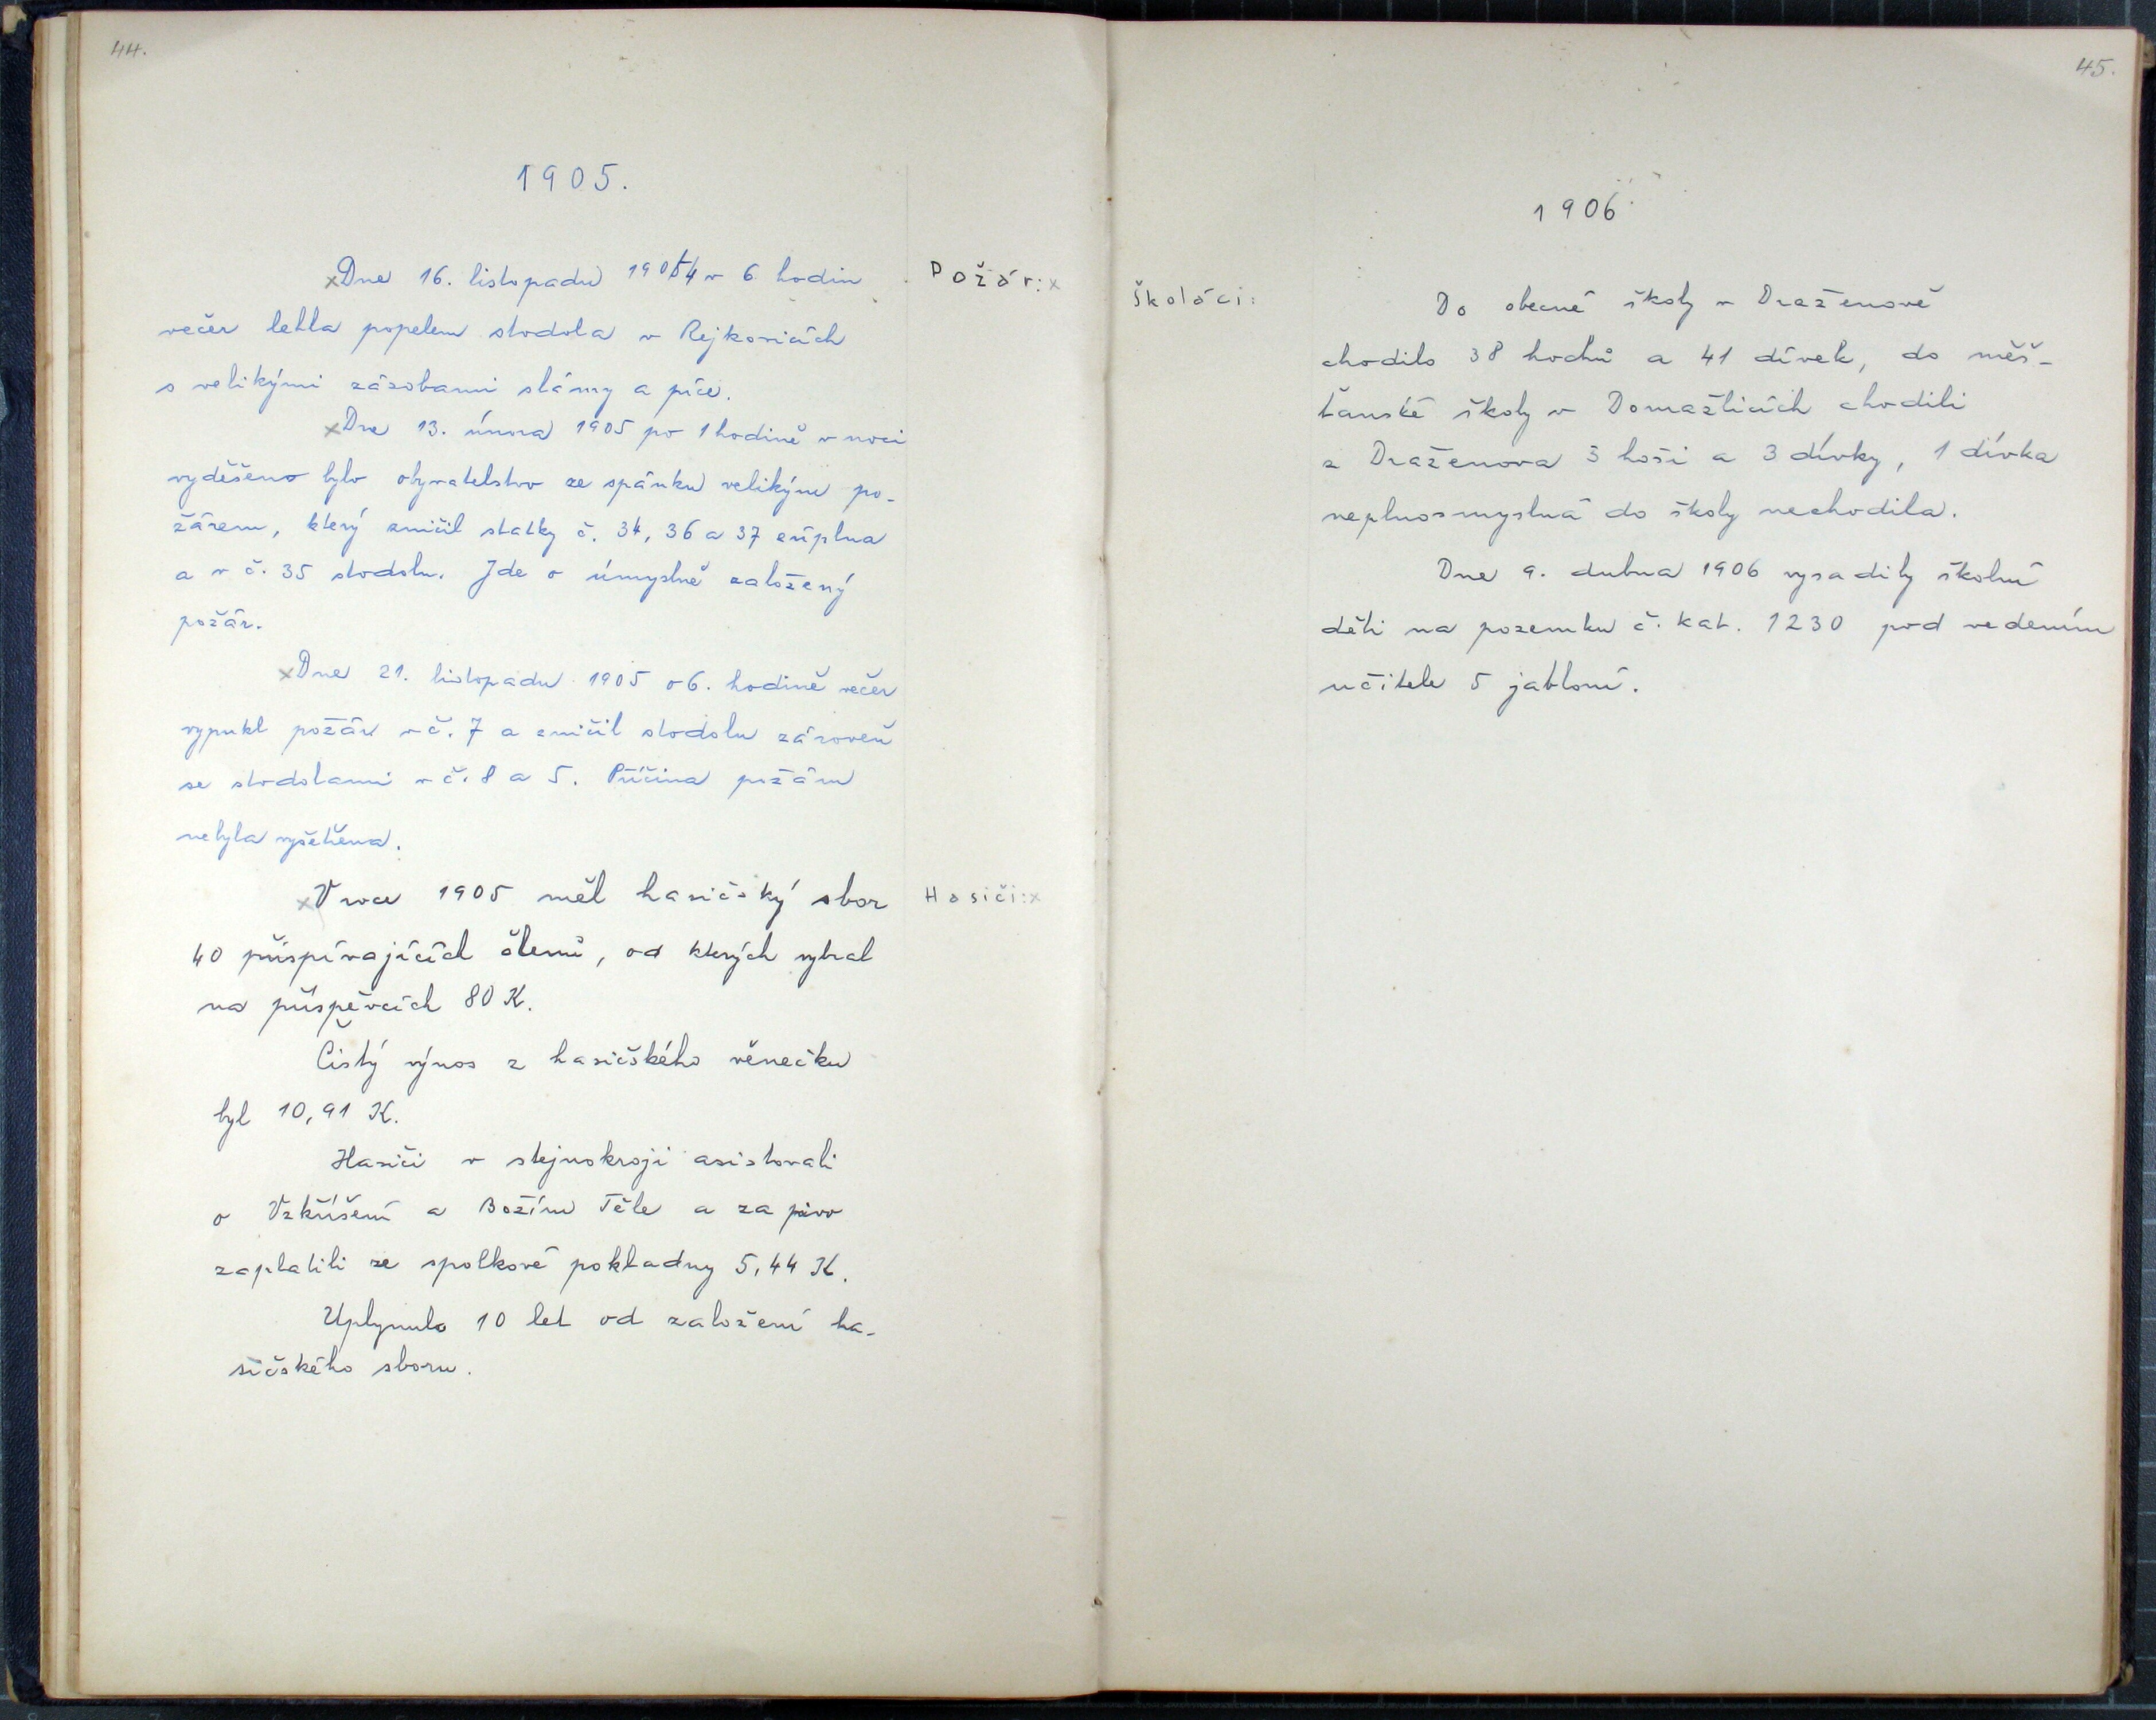 44.
1905.
Dne 16. listopadu 1904 v 6 hodin
Požár:x
večer lehla popelem stodola v Rejkovicích
s velikými zásobami slámy a píce.
xDne 13. února 1905 po 1 hodině v noci
vyděšeno bylo obyvatelstvo ze spánku velikým po-
žárem, který zničil statky č. 34, 36 a 37 ouplna
a v č. 35 stodolu. Jde o úmyslně založený
požár.
xDne 21. listopadu 1905 o 6. hodině večer
vypukl požár v č. 7 a zničil stodolu zároveň
se stodolami v č. 8 a 5. Příčina požáru
nebyla vyšetřena.
xV roce 1905 měl hasičský sbor
Hasiči:x
40 přispívajících členů, od kterých vybral
na příspěvcích 80 K.
Čistý výnos z hasičského věnečku
byl 10,91 K.
Hasiči v stejnokroji asistovali
o Vzkříšení a Božím Těle a za pivo
zaplatili ze spolkové pokladny 5,44 K.
Uplynulo 10 let od založení ha-
sičského sboru.
45.
1906
Školáci:
Do obecné školy v Draženově
chodilo 38 hochů a 41 dívek, do měš-
ťanské školy v Domažlicích chodili
z Draženova 3 hoši a 3 dívky, 1 dívka
neplnosmyslná do školy nechodila.
Dne 9. dubna 1906 vysadily školní
děti na pozemku č. kat. 1230 pod vedením
učitele 5 jabloní.